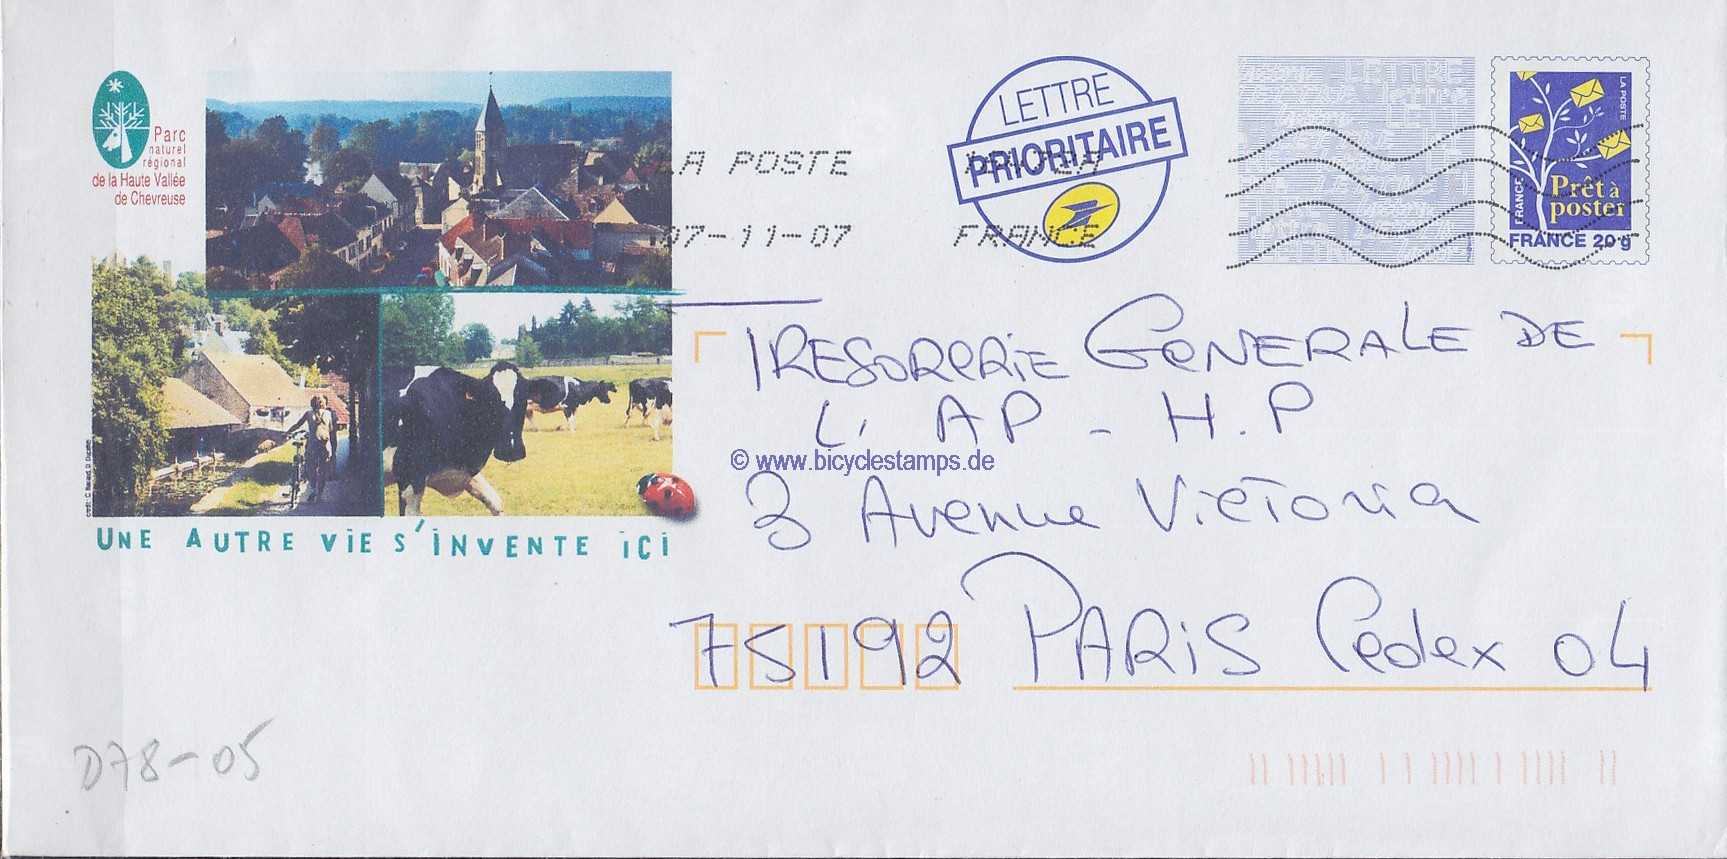 Parc
naturel
régional
de la Haute Vallée
de Chevreuse
LA POSTE
07-11-07
FRANCE
LETTRE
PRIORITAIRE
LA POSTE
FRANCE
Prêt à
poster
FRANCE 20 g
TRESORERIE GENERALE DE
L'AP-H.P
3 Avenue Victoria
75192 PARIS Cedex 04
© www.bicyclestamps.de
UNE AUTRE VIE S'INVENTE ICI
D78-05